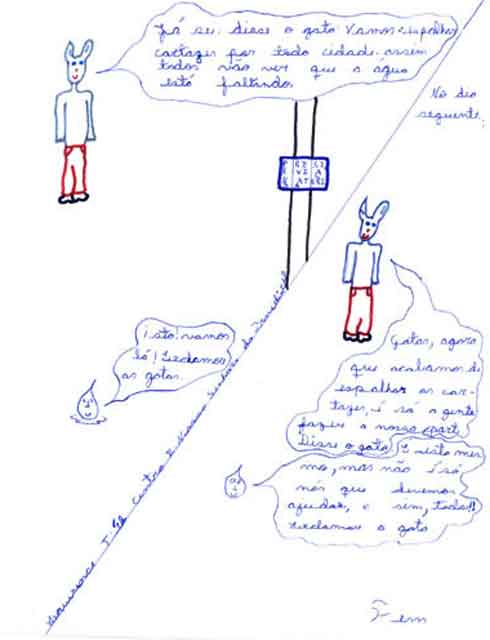 Já sei: disse o gato. Vamos espalhar
cartazes por toda cidade assim
todos vão ver que a água
está faltando.
No dia
seguinte,
isto! vamos
lá! Exclamou
as gotas.
Gotas, agora
que acabamos de
espalhar os car-
tazes, é só a gente
fazer a nossa part
Disse o gato.
E isto mes
mo, mas não é só
nós que devemos
ajudar, e sim, todos!!
exclamou a gota
T. 42 Centro E
Fim